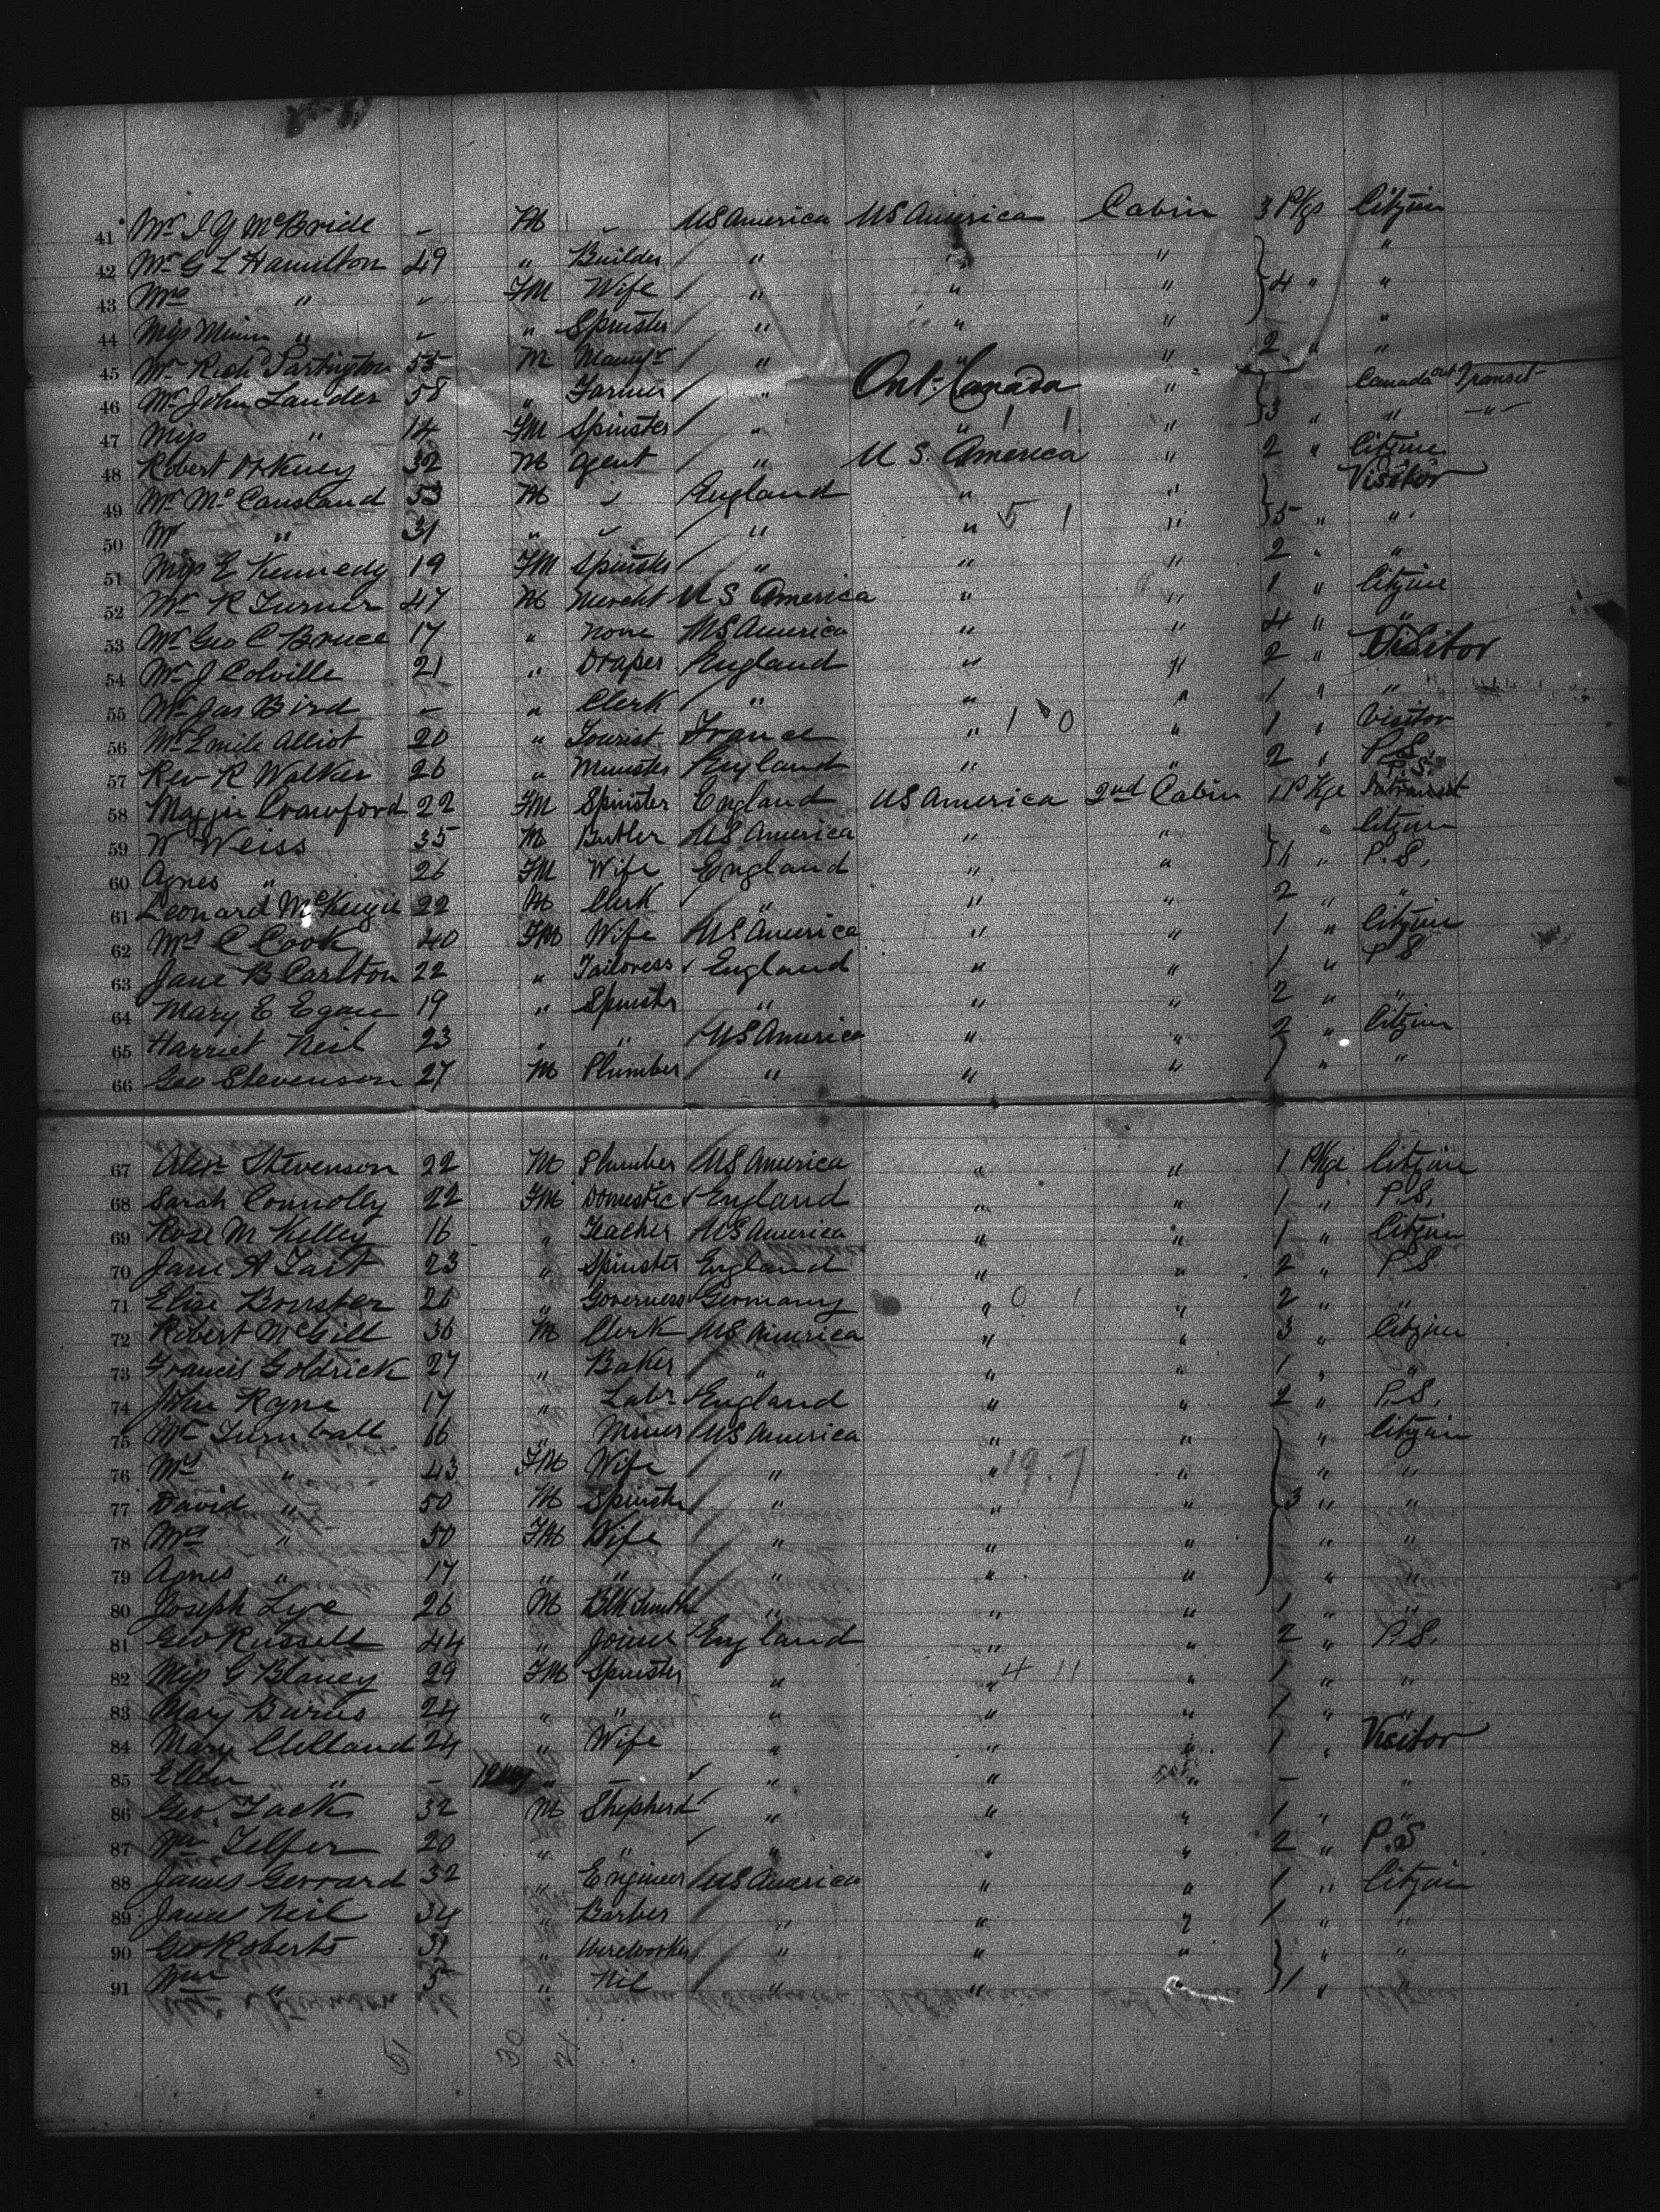 41 Mr J G McBride – M – US America US America Cabin 3 Pkgs Citizen
42 Mr G L Hamilton 49 " Builder " " " "
43 Mrs " – FM Wife " " " 4 " "
44 Miss Minn " – " Spinster " " " "
45 Mr Rich Partington 55 M " " " 2 " "
46 Mr John Lander 58 " Farmer " Ont. Canada " Canada Transit
47 Miss " 14 FM Spinster " " 1 1 " 3 " " –"–
48 Robert 32 M Agent " U S. America " 2 " Citizen
49 Mr McCausland 53 M – England " " Visitor
50 Mr " 31 " – " " 5 1 " 5 " "
51 Miss E Kennedy 19 FM Spinster " " " 2 " "
52 Mr R Turner 47 M Mercht U S America " " 1 " Citizen
53 Mr Geo C Bruce 17 " None US America " " 4 " "
54 Mr J Colville 21 " Draper England " " 2 " Visitor
55 Mr Jas Bird – " Clerk " " " 1 " "
56 Mr Emile Alliot 20 " Tourist France " 1 0 " 1 " Visitor
57 Rev R Walker 26 " Minister England " " 2 " P.S.
58 Maggie Crawford 22 FM Spinster England US America 2nd Cabin 1 Pkge P.S.
59 W Weiss 35 M Butler US America " " " Citizen
60 Agnes " 26 FM Wife England " " 4 " P.S.
61 Leonard McKenzie 22 M Clerk " " " 2 " "
62 Mrs C Cook 40 FM Wife US America " " 1 " Citizen
63 Jane B Carlton 22 " Tailoress England " " 1 " P S
64 Mary E Egan 19 " Spinster " " " 2 " "
65 Harriet Neil 23 " " US America " " 2 " Citizen
66 Geo Stevenson 27 M Plumber " " " " "
67 Alexr Stevenson 22 M Plumber US America " " 1 Pkge Citizen
68 Sarah Connolly 22 FM Domestic England " " 1 " P.S.
69 Rose M Kelley 16 " Teacher US America " " 1 " Citizen
70 Jane A Tait 23 " Spinster England " " 2 " P S
71 Elise 26 " Governess Germany " 0 1 " 2 " "
72 Robert McGill 36 M Clerk US America " " 3 " Citizen
73 Francis Goldrick 27 " Baker " " " 1 " "
74 John Ryne 17 " Labr England " " 2 " P.S.
75 Mr Turnball 66 " Miner US America " " " Citizen
76 Mrs " 43 FM Wife " " 19.7 " " "
77 David " 50 M Spinster " " " 3 " "
78 Mrs " 50 FM Wife " " " "
79 Agnes " 17 " " " " " " "
80 Joseph Lye 26 M Blk Smith " " " 1 " "
81 Geo Russell 44 " Joiner England " " 2 " P.S.
82 Miss G Blaney 29 FM Spinster " " 4 11 " 1 " "
83 Mary Burns 24 " " " " " 1 " "
84 Mary Clelland 24 " Wife " " " 1 " Visitor
85 Ellen " – " – " " " – "
86 Geo Jack 32 M Shepherd " " " 1 " "
87 Wm Telfer 20 " " " " " 2 " P.S
88 James Gerrard 32 " Engineer US America " " 1 " Citizen
89 James Neil 34 " Barber " " " 1 " "
90 Geo Roberts 31 " " " " " "
91 Wm " 5 " Nil " " " 1 " "